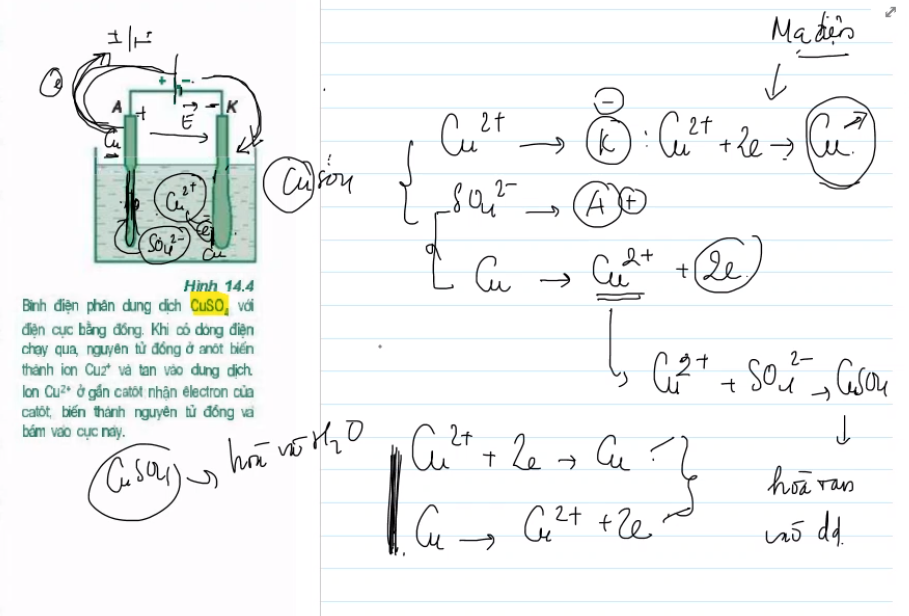 Mạ điện
I
+ -
e
A + E - K
Cu
Cu²⁺
e
SO₄²⁻ Cu
Hình 14.4
Bình điện phân dung dịch CuSO₄ với
điện cực bằng đồng. Khi có dòng điện
chạy qua, nguyên tử đồng ở anôt biến
thành ion Cu2⁺ và tan vào dung dịch.
Ion Cu²⁺ ở gần catôt nhận êlectron của
catôt, biến thành nguyên tử đồng và
bám vào cực này.
CuSO₄ → hoà vào H₂O
CuSO₄
-
Cu²⁺ → K : Cu²⁺ + 2e → Cu
SO₄²⁻ → A +
Cu → Cu²⁺ + 2e
Cu²⁺ + SO₄²⁻ → CuSO₄
hoà tan
vào dd.
Cu²⁺ + 2e → Cu
Cu → Cu²⁺ + 2e